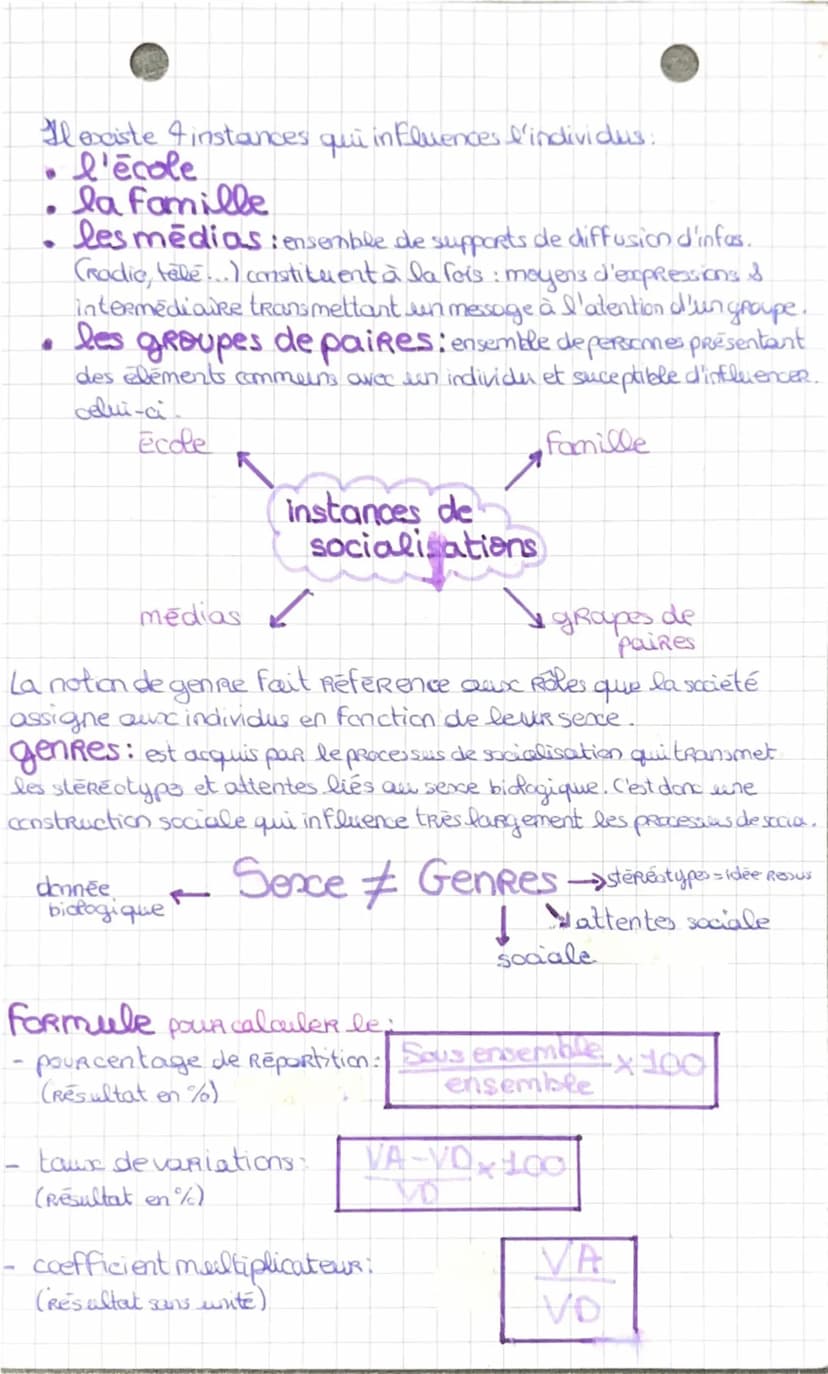 Il existe 4 instances qui influences l'individus :
• l'école
• la famille
• les médias : ensemble de supports de diffusion d'infos.
(radio, télé...) constituent à la fois : moyens d'expressions &
intermédiaire transmettant un message à l'atention d'un groupe.
• les groupes de paires : ensemble de personnes présentant
des éléments communs avec un individu et suceptible d'influencer.
celui-ci.
école
famille
instances de
socialisations
médias
groupes de
paires
La notion de genre fait référence aux rôles que la société
assigne aux individus en fonction de leur sexe.
genres : est acquis par le processus de socialisation qui transmet
les stéréotype et attentes liés au sexe biologique. C'est donc une
construction sociale qui influence très largement les processus de socia.
donnée
biologique ← Sexe ≠ Genres → stéréotypes = idée reçus
attentes sociale
sociale
Formule pour calculer le :
- pourcentage de répartition : Sous ensemble / ensemble × 100
(résultat en %)
- taux de variations : VA - VD / VD × 100
(résultat en %)
- coefficient multiplicateur : VA / VD
(résultat sans unité)